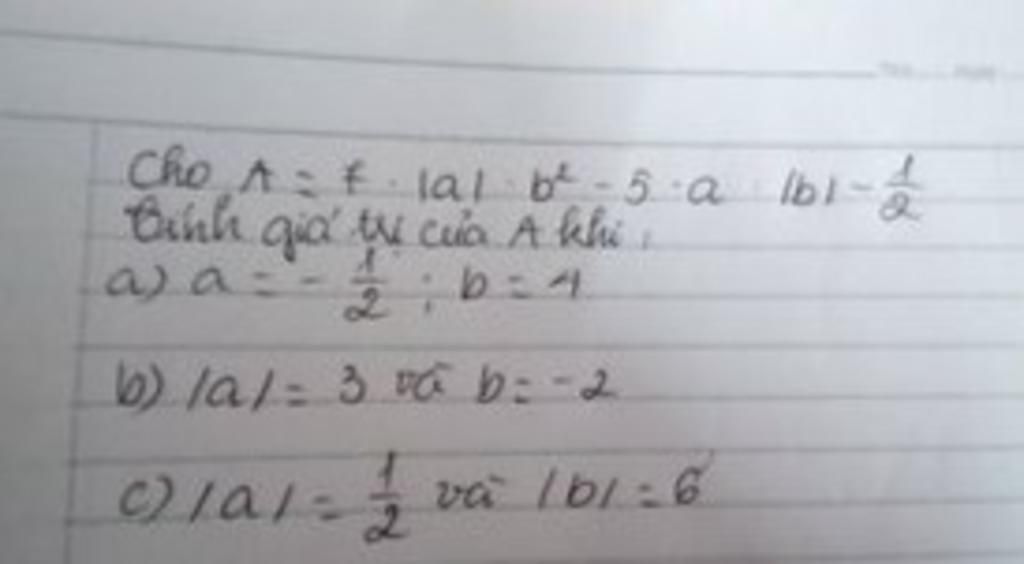 Cho A = 7 . |a| . b² - 5 . a . |b| - 1/2
tính giá trị của A khi :
a) a = - 1/2 ; b = 4
b) |a| = 3 và b = -2
c) |a| = 1/2 và |b| = 6